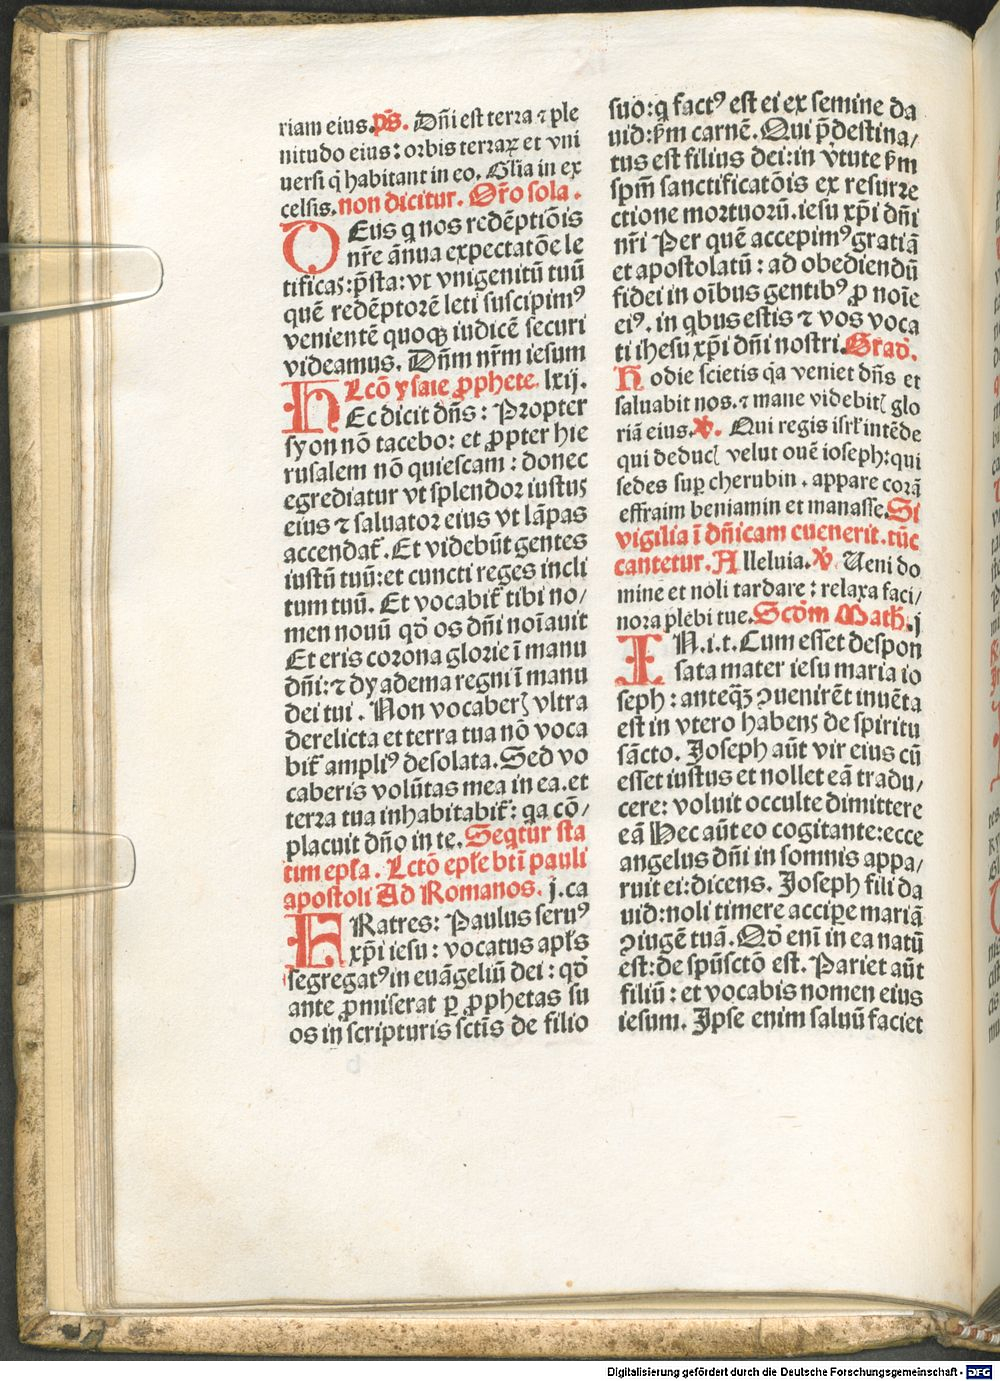 riam eius.ps̄. Dn̄i est terra ⁊ ple
nitudo eius: orbis terraꝝ et vni
uersi q̇ habitant in eo. Glīa in ex
celsis.non dicitur. Or̄o sola.
DEus q nos redēptiōis
nr̄e ān̄ua expectatōe le
tificas:p̄sta:vt vnigenitū tuū
quē redēptorē leti suscipimꝰ
venientē quoqꝫ iudicē securi
videamus. Dn̄m nr̄m iesum
Lcō ysaie ꝓphete. lxij.
HEc dicit dn̄s: Propter
syon nō tacebo: et ꝓpter hie
rusalem nō quiescam: donec
egrediatur vt splendor iustus
eius ⁊ saluator eius vt lāpas
accendat̄. Et videbūt gentes
iustū tuū:et cuncti reges incli
tum tuū. Et vocabit̄ tibi no/
men nouū qd̄ os dn̄i noīauit
Et eris corona glorie ī manu
dn̄i:⁊ dyadema regni ī manu
dei tui. Non vocaberꝭ vltra
derelicta et terra tua nō voca
bit̄ ampliꝰ desolata. Sed vo
caberis volūtas mea in ea.et
terra tua inhabitabit̄: qa cō/
placuit dn̄o in te. Seqtur sta
tim epl̄a. Lctō epl̄e btī pauli
apostoli Ad Romanos. j.ca
FRatres: Paulus seruꝰ
xp̄i iesu: vocatus apl̄s
segregatꝰ in euāgeliū dei: qd̄
ante ꝓmiserat ꝑ ꝓphetas su
os in scripturis sctīs de filio
suo:q factꝰ est ei ex semine da
uid:ẜm carnē. Qui p̄destina/
tus est filius dei:in v̄tute ẜm
spm̄ sanctificatōis ex resurre
ctione mortuorū.iesu xp̄i dn̄i
nr̄i Per quē accepimꝰ gratiā
et apostolatū: ad obediendū
fidei in oībus gentibꝰ ꝓ noīe
eiꝰ. in qbus estis ⁊ vos voca
ti ihesu xp̄i dn̄i nostri. Grad̄.
Hodie scietis qa veniet dn̄s et
saluabit nos.⁊ mane videbitꝭ glo
riā eius. ℣. Qui regis isrl̄ intēde
qui deducꝭ velut ouē ioseph:qui
sedes suꝑ cherubin. appare corā
effraim beniamin et manasse. Si
vigilia ī dn̄icam euenerit.tūc
cantetur. Alleluia. ℣. Ueni do
mine et noli tardare: relaxa faci/
nora plebi tue. Scd̄m Math̄. j
IN.i.t. Cum esset despon
sata mater iesu maria io
seph: anteqꝫ ꝯuenirēt inuēta
est in vtero habens de spiritu
sācto. Joseph aūt vir eius cū
esset iustus et nollet eā tradu/
cere: voluit occulte dimittere
eā Hec aūt eo cogitante:ecce
angelus dn̄i in somnis appa/
ruit ei:dicens. Joseph fili da
uid:noli timere accipe mariā
ꝯiugē tuā. Qd̄ enī in ea natū
est:de spūsctō est. Pariet aūt
filiū: et vocabis nomen eius
iesum. Ipse enim saluū faciet
Digitalisierung gefördert durch die Deutsche Forschungsgemeinschaft - DFG